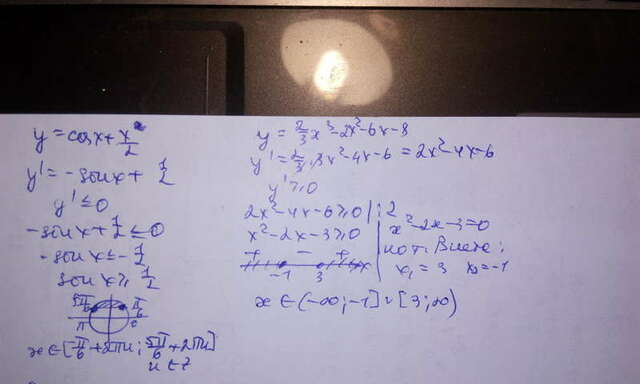 y = cos x + x/2
y' = -sin x + 1/2
y' ≤ 0
-sin x + 1/2 ≤ 0
-sin x ≤ -1/2
sin x ≥ 1/2
5π/6 π/6
π 0
x ∈ [π/6 + 2πn; 5π/6 + 2πn]
n ∈ Z
y = 2/3 x³ - 2x² - 6x - 8
y' = 2/3 · 3x² - 4x - 6 = 2x² - 4x - 6
y' ≥ 0
2x² - 4x - 6 ≥ 0 | : 2
x² - 2x - 3 ≥ 0
+ - +
-1 3 x
x ∈ (-∞; -1] ∪ [3; ∞)
x² - 2x - 3 = 0
по т. Виета:
x₁ = 3 x₂ = -1